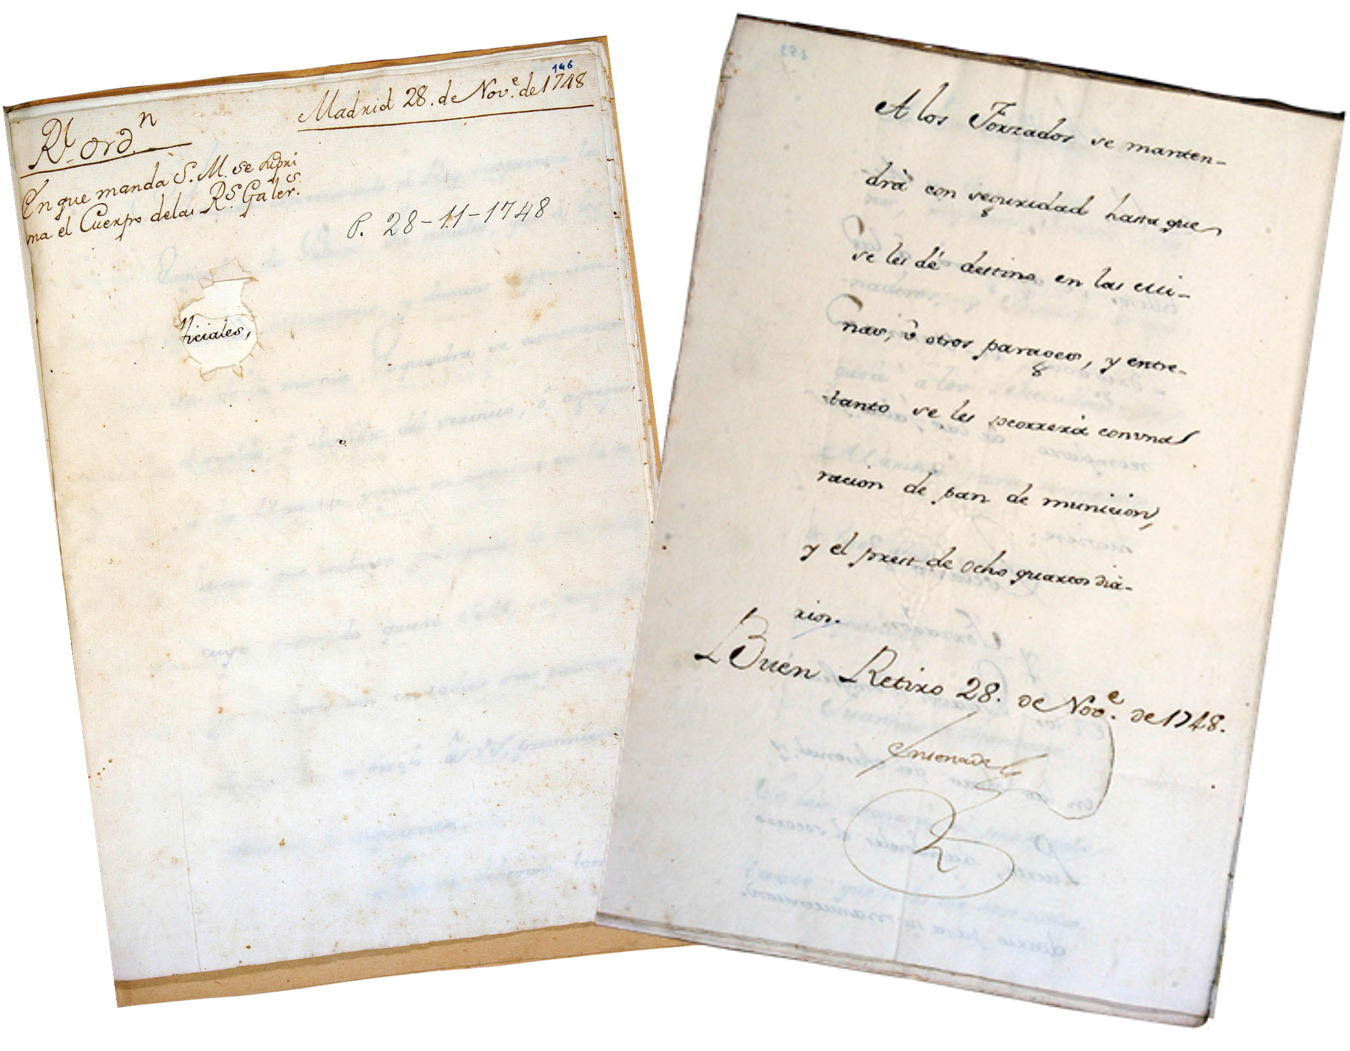 146
Madrid 28. de Nov.e de 1748
Rl ordn
En que manda S. M. se supri
ma el Cuerpo de las Rs Galers.
P. 28-11-1748
ficiales,
A los Forzados se manten-
drá con seguridad hasta que
se les dé destino en las Mi-
nas, ó otros parages, y entre-
tanto se les socorrerá con una
racion de pan de municion,
y el prest de ocho quartos dia-
rios.
Buen Retiro 28. de Nov.e de 1748.
Ensenada